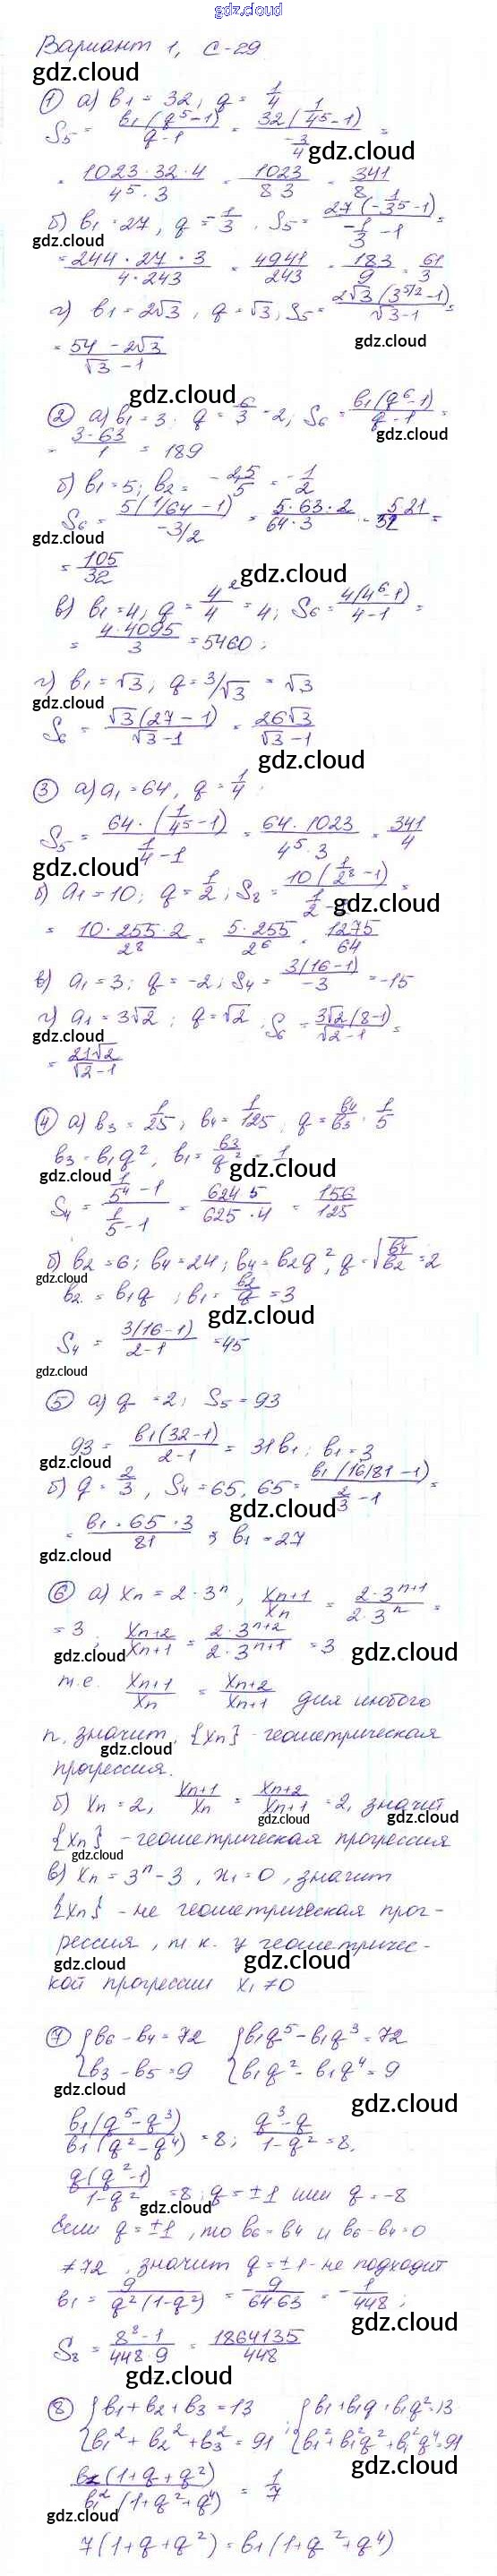 gdz.cloud
Вариант 1, С-29
gdz.cloud
① а) b1 = 32, q = 1/4
S5 = b1(q^5-1)/(q-1) = 32(1/4^5-1)/(-3/4) =
gdz.cloud
= 1023·32·4/(4^5·3) = 1023/(8 3) = 341/8
б) b1 = 27, q = -1/3, S5 = 27(-1/3^5-1)/(-1/3-1) =
gdz.cloud
= 244·27·3/(4·243) = 4941/243 = 183/9 = 61/3
г) b1 = 2√3, q = √3, S5 = 2√3(3^5/2-1)/(√3-1) =
gdz.cloud
= (54-2√3)/(√3-1)
gdz.cloud
② а) b1 = 3; q = 6/3 = 2; S6 = b1(q^6-1)/(q-1) =
gdz.cloud
= 3·63/1 = 189
б) b1 = 5; b2 = -2,5/5 = -1/2
S6 = 5(1/64-1)/(-3/2) = 5·63·2/(64·3) = 5·21/32 =
gdz.cloud
= 105/32
gdz.cloud
в) b1 = 4; q = 4^2/4 = 4; S6 = 4(4^6-1)/(4-1) =
= 4·4095/3 = 5460;
г) b1 = √3; q = 3/√3 = √3
gdz.cloud
S6 = √3(27-1)/(√3-1) = 26√3/(√3-1)
gdz.cloud
③ а) a1 = 64, q = 1/4;
S5 = 64·(1/4^5-1)/(1/4-1) = 64·1023/(4^5·3) = 341/4
gdz.cloud
б) a1 = 10; q = 1/2; S8 = 10(1/2^8-1)/(1/2-1) =
gdz.cloud
= 10·255·2/2^8 = 5·255/2^6 = 1275/64
в) a1 = 3; q = -2; S4 = 3(16-1)/(-3) = -15
gdz.cloud
г) a1 = 3√2; q = √2, S6 = 3√2(8-1)/(√2-1) =
gdz.cloud
= 21√2/(√2-1)
④ а) b3 = 1/25; b4 = 1/125; q = b4/b3 = 1/5
b3 = b1q^2, b1 = b3/q^2 = 1
gdz.cloud
gdz.cloud
S4 = (1/5^4-1)/(1/5-1) = 624 5/(625·4) = 156/125
б) b2 = 6; b4 = 24; b4 = b2q^2, q = √(b4/b2) = 2
gdz.cloud
b2 = b1q; b1 = b2/q = 3
gdz.cloud
S4 = 3(16-1)/(2-1) = 45
gdz.cloud
⑤ а) q = 2; S5 = 93
93 = b1(32-1)/(2-1) = 31b1; b1 = 3
gdz.cloud
б) q = 2/3, S4 = 65, 65 = b1(16/81-1)/(2/3-1) =
gdz.cloud
= b1·65·3/81 ⇒ b1 = 27
gdz.cloud
⑥ а) xn = 2·3^n, xn+1/xn = 2·3^(n+1)/(2·3^n) =
= 3, xn+2/xn+1 = 2·3^(n+2)/(2·3^(n+1)) = 3
gdz.cloud
gdz.cloud
т.е. xn+1/xn = xn+2/xn+1 для любого
n, значит, {xn} - геометрическая
gdz.cloud
прогрессия.
б) xn = 2, xn+1/xn = xn+2/xn+1 = 2, значит
gdz.cloud
gdz.cloud
{xn} - геометрическая прогрессия
gdz.cloud
в) xn = 3^n - 3, x1 = 0, значит
{xn} - не геометрическая прог-
рессия, т к. у геометричес-
gdz.cloud
gdz.cloud
кой прогрессии x1 ≠ 0
⑦ {b6 - b4 = 72 {b1q^5 - b1q^3 = 72
{b3 - b5 = 9 {b1q^2 - b1q^4 = 9
gdz.cloud
gdz.cloud
b1(q^5-q^3)/b1(q^2-q^4) = 8; (q^3-q)/(1-q^2) = 8,
q(q^2-1)/(1-q^2) = 8; q = ±1 или q = -8
gdz.cloud
Если q = ±1, то b6 = b4 и b6 - b4 = 0
≠ 72, значит q = ±1 - не подходит
b1 = 9/(q^2(1-q^2)) = -9/(64 63) = -1/448;
gdz.cloud
S8 = (8^8-1)/(448·9) = 1864135/448
gdz.cloud
⑧ {b1 + b2 + b3 = 13 {b1 + b1q + b1q^2 = 13
{b1^2 + b2^2 + b3^2 = 91; {b1^2 + b1^2q^2 + b1^2q^4 = 91
gdz.cloud
b1(1+q+q^2)/b1^2(1+q^2+q^4) = 1/7
gdz.cloud
7(1+q+q^2) = b1(1+q^2+q^4)